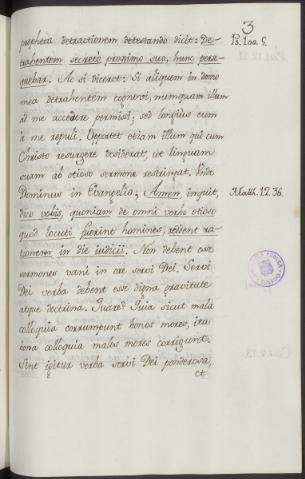 3
propheta detractionem detestando dicit: De-
trahentem secreto proximo suo, hunc perse-
quebar. Ac si diceret: Si aliquem in domo
mea detrahentem cognovi, numquam illum
ad me accedere permisi; sed longius eum
à me repuli. Oportet etiam illum qui cum
Christo resurgere desiderat, ut linguam
suam ab otioso sermone restringat. Unde
Dominus in Evangelio; Amen, inquit,
dico vobis, quoniam de omni verbo otioso
quod locuti fuerint homines, reddent ra-
tionem in die iudicii. Non debent esse
sermones vani in ore servi Dei. Servi
Dei verba debent esse digna gravitate
atque doctrina. Quare? Quia sicut mala
colloquia corrumpunt bonos mores, ita
bona colloquia malos mores corrigunt.
Sint igitur verba servi Dei ponderosa,
et
Ps. 100. 5.
Matth. 12. 36.